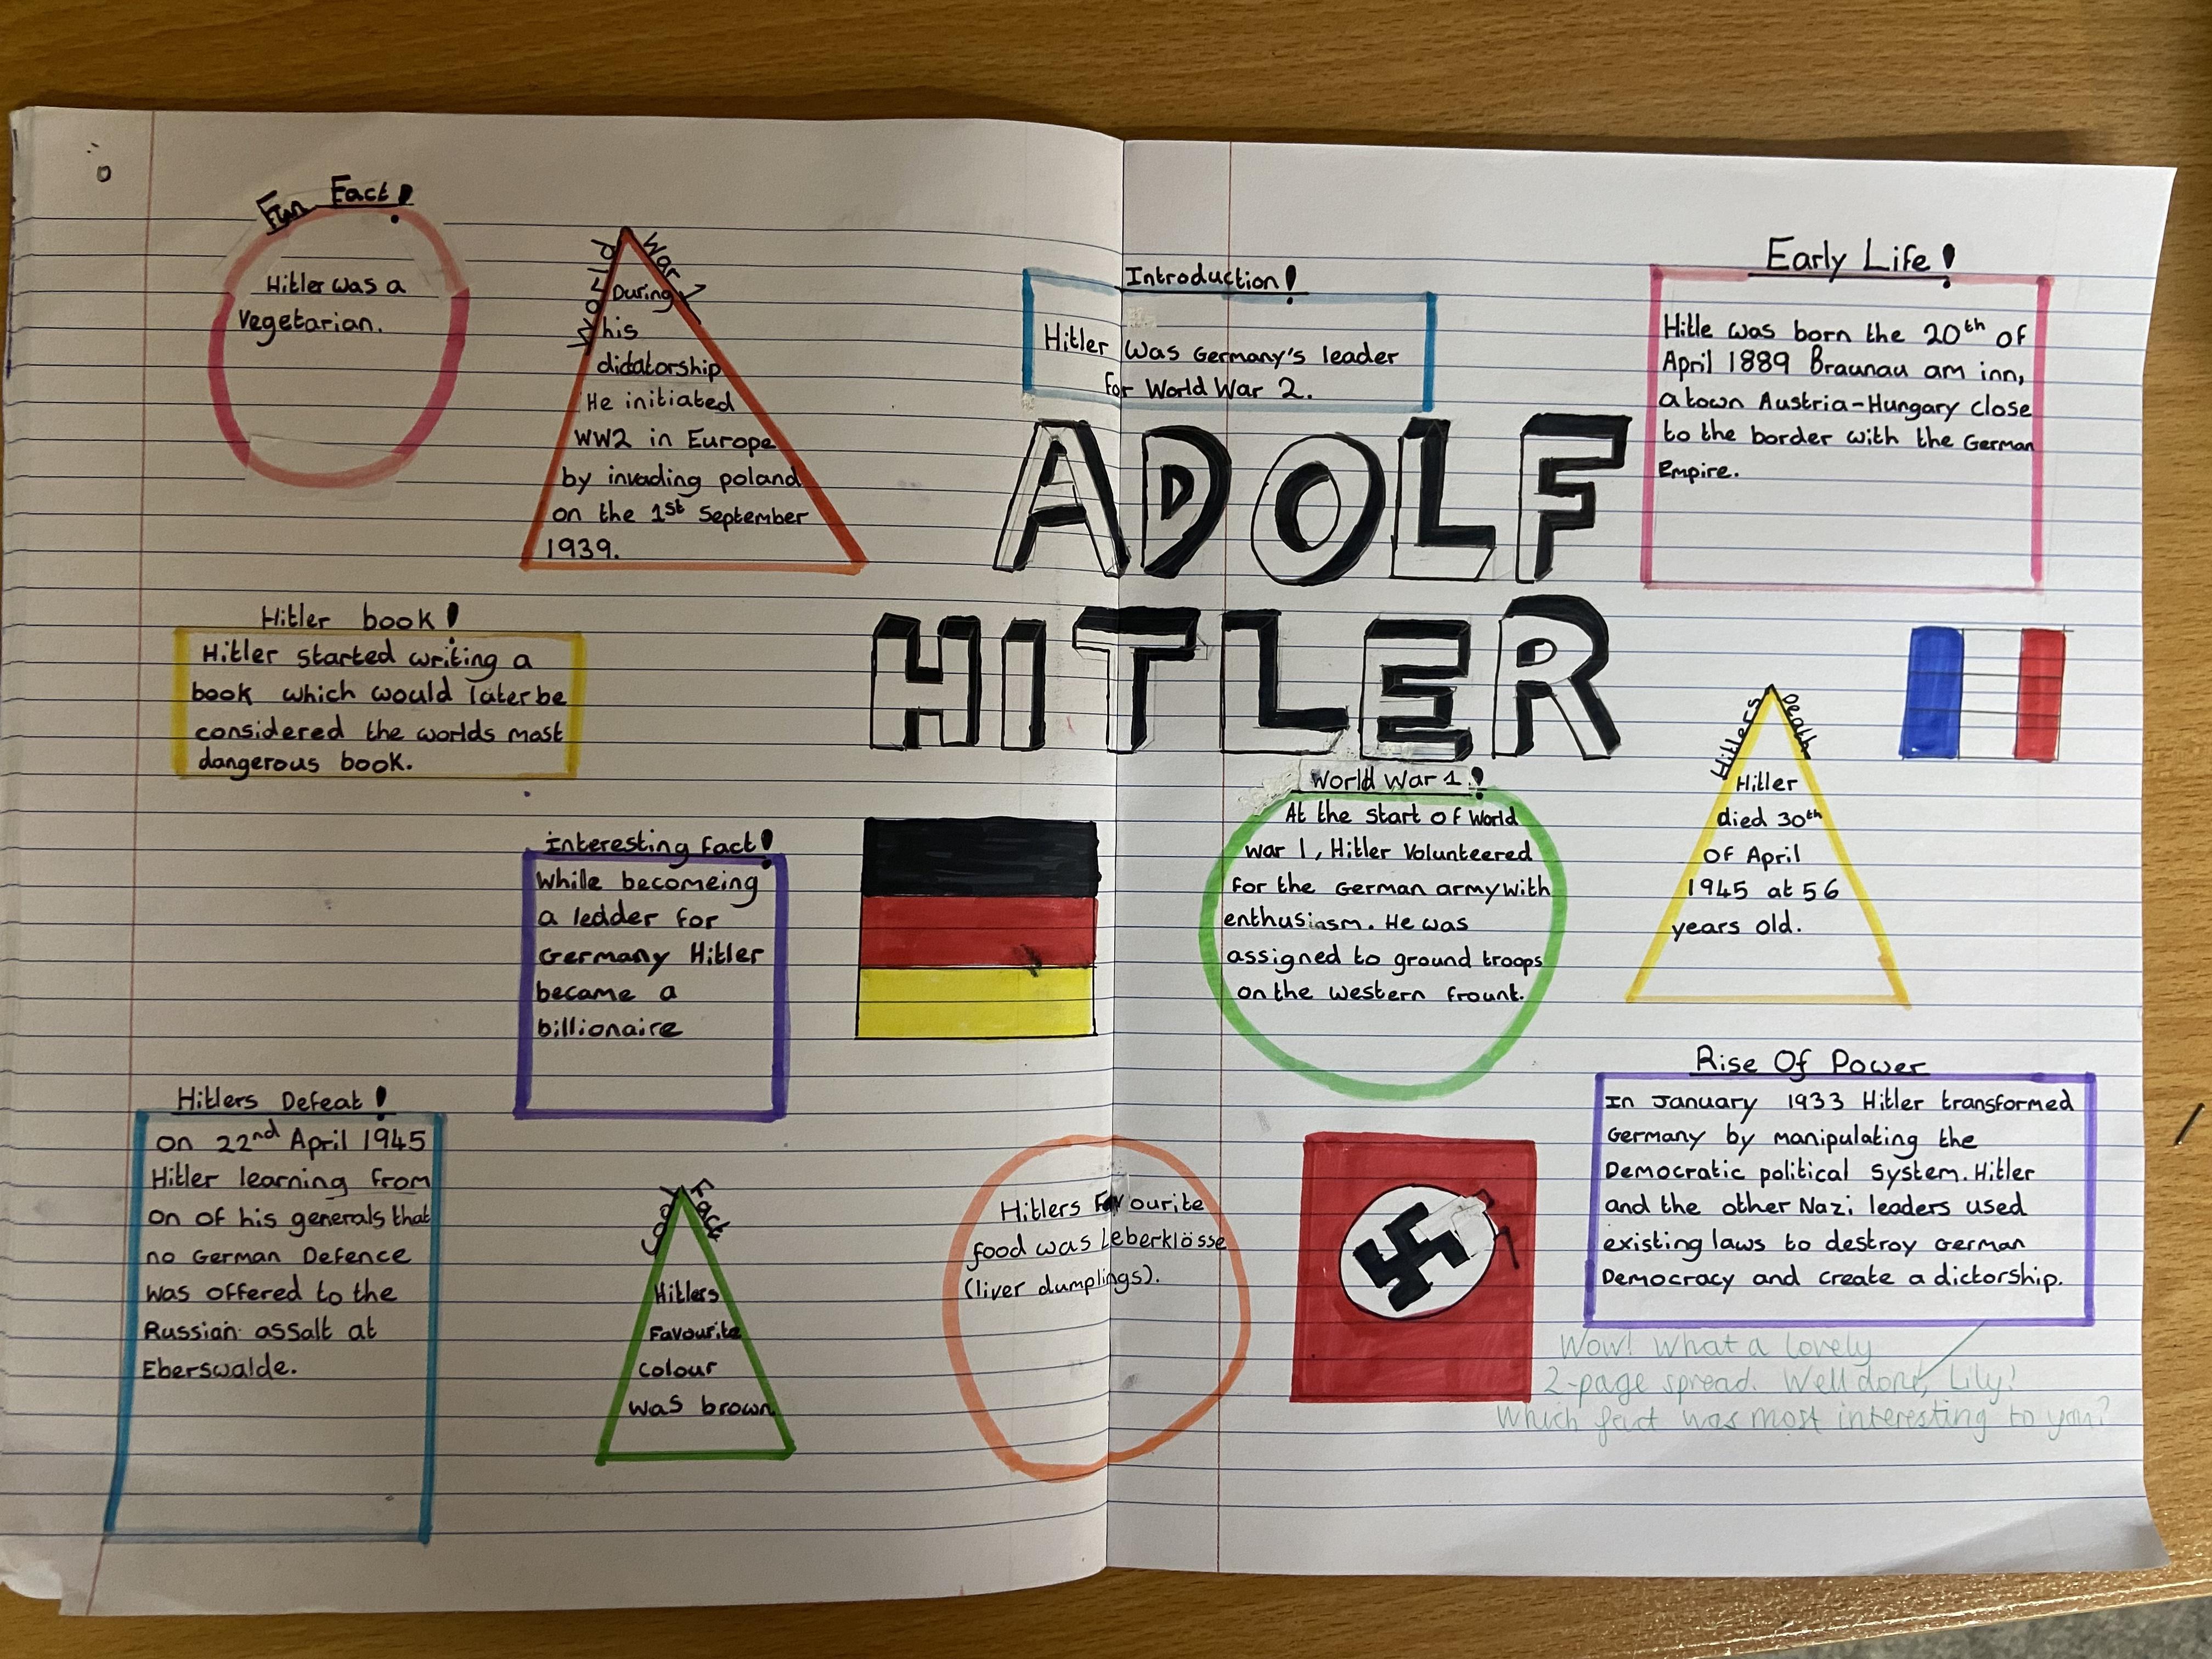 Fun Fact!
Hitler was a
Vegetarian.
World War
During
his
dictatorship
He initiated
WW2 in Europe
by invading poland
on the 1st September
1939.
Introduction!
Hitler was Germany's leader
for World War 2.
ADOLF
HITLER
Early Life!
Hitle was born the 20th of
April 1889 Braunau am inn,
a town Austria-Hungary close
to the border with the German
Empire.
Hitler book!
Hitler started writing a
book which would later be
considered the worlds most
dangerous book.
Interesting fact!
While becomeing
a ledder for
Germany Hitler
became a
billionaire
World War 1!
At the start of World
war 1, Hitler Volunteered
for the German army with
enthusiasm. He was
assigned to ground troops
on the western frount.
Hitlers Death
Hitler
died 30th
of April
1945 at 56
years old.
Hitlers Defeat!
on 22nd April 1945
Hitler learning from
on of his generals that
no German Defence
was offered to the
Russian assalt at
Eberswalde.
Fact
Hitlers
Favourite
colour
was brown
Hitlers Favourite
food was Leberklösse
(liver dumplings).
Rise Of Power
In January 1933 Hitler transformed
Germany by manipulating the
Democratic political system. Hitler
and the other Nazi leaders used
existing laws to destroy German
Democracy and create a dictorship.
Wow! What a lovely
2-page spread. Well done, Lily!
Which fact was most interesting to you?